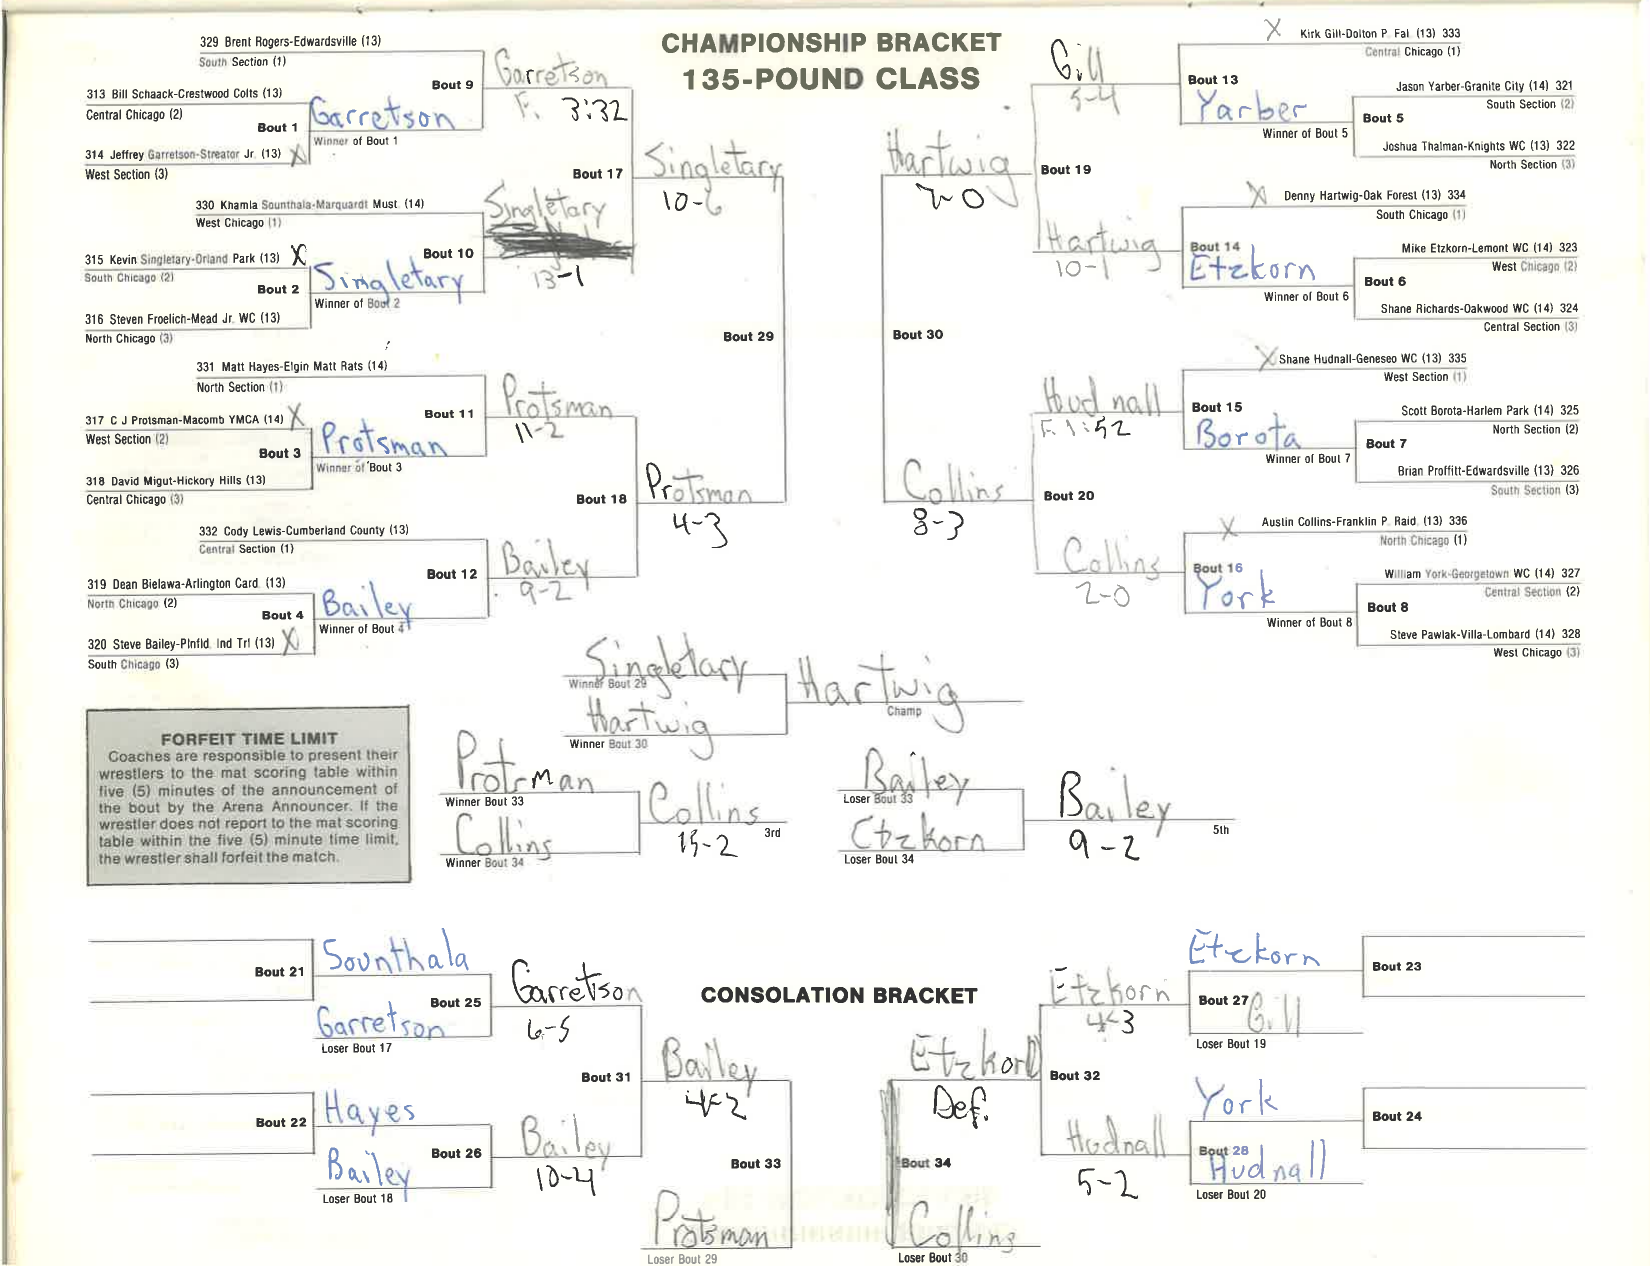 CHAMPIONSHIP BRACKET
135-POUND CLASS
329 Brent Rogers-Edwardsville (13)
South Section (1)
Bout 9
Garretson
F. 3:32
313 Bill Schaack-Crestwood Colts (13)
Central Chicago (2)
Bout 1
Garretson
Winner of Bout 1
314 Jeffrey Garretson-Streator Jr. (13) X
West Section (3)
Bout 17
Singletary
10-6
330 Khamla Sounthala-Marquardt Must. (14)
West Chicago (1)
Bout 10
Singletary
13-1
315 Kevin Singletary-Orland Park (13) X
South Chicago (2)
Bout 2
Singletary
Winner of Bout 2
316 Steven Froelich-Mead Jr. WC (13)
North Chicago (3)
Bout 29
331 Matt Hayes-Elgin Matt Rats (14)
North Section (1)
Bout 11
Protsman
11-2
317 C J Protsman-Macomb YMCA (14) X
West Section (2)
Bout 3
Protsman
Winner of Bout 3
318 David Migut-Hickory Hills (13)
Central Chicago (3)
Bout 18
Protsman
4-3
332 Cody Lewis-Cumberland County (13)
Central Section (1)
Bout 12
Bailey
9-2
319 Dean Bielawa-Arlington Card. (13)
North Chicago (2)
Bout 4
Bailey
Winner of Bout 4
320 Steve Bailey-Plnfld. Ind Trl (13) X
South Chicago (3)
X Kirk Gill-Dolton P. Fal. (13) 333
Central Chicago (1)
Gill
5-4
Bout 13
Yarber
Winner of Bout 5
Jason Yarber-Granite City (14) 321
South Section (2)
Bout 5
Joshua Thalman-Knights WC (13) 322
North Section (3)
Hartwig
Bout 19
X Denny Hartwig-Oak Forest (13) 334
South Chicago (1)
Hartwig
10-1
Bout 14
Etzkorn
Winner of Bout 6
Mike Etzkorn-Lemont WC (14) 323
West Chicago (2)
Bout 6
Shane Richards-Oakwood WC (14) 324
Central Section (3)
Bout 30
X Shane Hudnall-Geneseo WC (13) 335
West Section (1)
Hudnall
F. 1:52
Bout 15
Borota
Winner of Bout 7
Scott Borota-Harlem Park (14) 325
North Section (2)
Bout 7
Brian Proffitt-Edwardsville (13) 326
South Section (3)
Collins
8-3
Bout 20
X Austin Collins-Franklin P. Raid. (13) 336
North Chicago (1)
Collins
2-0
Bout 16
York
Winner of Bout 8
William York-Georgetown WC (14) 327
Central Section (2)
Bout 8
Steve Pawlak-Villa-Lombard (14) 328
West Chicago (3)
Singletary
Winner Bout 29
Hartwig
Winner Bout 30
Hartwig
Champ
FORFEIT TIME LIMIT
Coaches are responsible to present their
wrestlers to the mat scoring table within
five (5) minutes of the announcement of
the bout by the Arena Announcer. If the
wrestler does not report to the mat scoring
table within the five (5) minute time limit,
the wrestler shall forfeit the match.
Protrman
Winner Bout 33
Collins
Winner Bout 34
Collins
15-2
3rd
Bailey
Loser Bout 33
Etzkorn
Loser Bout 34
Bailey
9-2
5th
CONSOLATION BRACKET
Bout 21
Sounthala
Bout 25
Garretson
Loser Bout 17
Garretson
6-5
Bout 31
Bailey
4-2
Bout 22
Hayes
Bout 26
Bailey
Loser Bout 18
Bailey
10-4
Bout 33
Protsman
Loser Bout 29
Etzkorn
Bout 23
Etzkorn
4-3
Bout 27
Gill
Loser Bout 19
Etzkorn
Def.
Bout 32
York
Bout 24
Hudnall
5-2
Bout 28
Hudnall
Loser Bout 20
Bout 34
Collins
Loser Bout 30